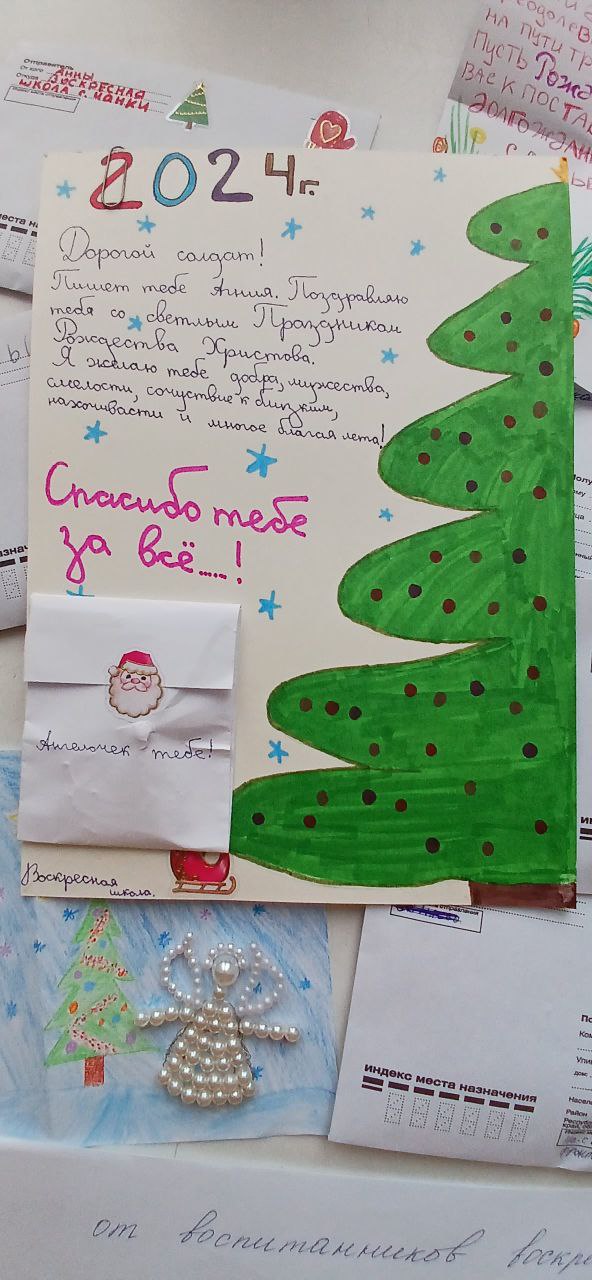 Отправитель
От кого Анны
Откуда Воскресная
школа с. Чанки
на пути
Пусть
Вас к
2024г.
Дорогой солдат!
Пишет тебе Агния. Поздравляю
тебя со светлым Праздником
Рождества Христова.
Я желаю тебе добра, мужества,
смелости, сочуствие к близким,
находчивасти и многое благая лета!
Спасибо тебе
за всё.....!
Ангелочек тебе!
Воскресная
школа.
индекс места назначения
от воспитанников